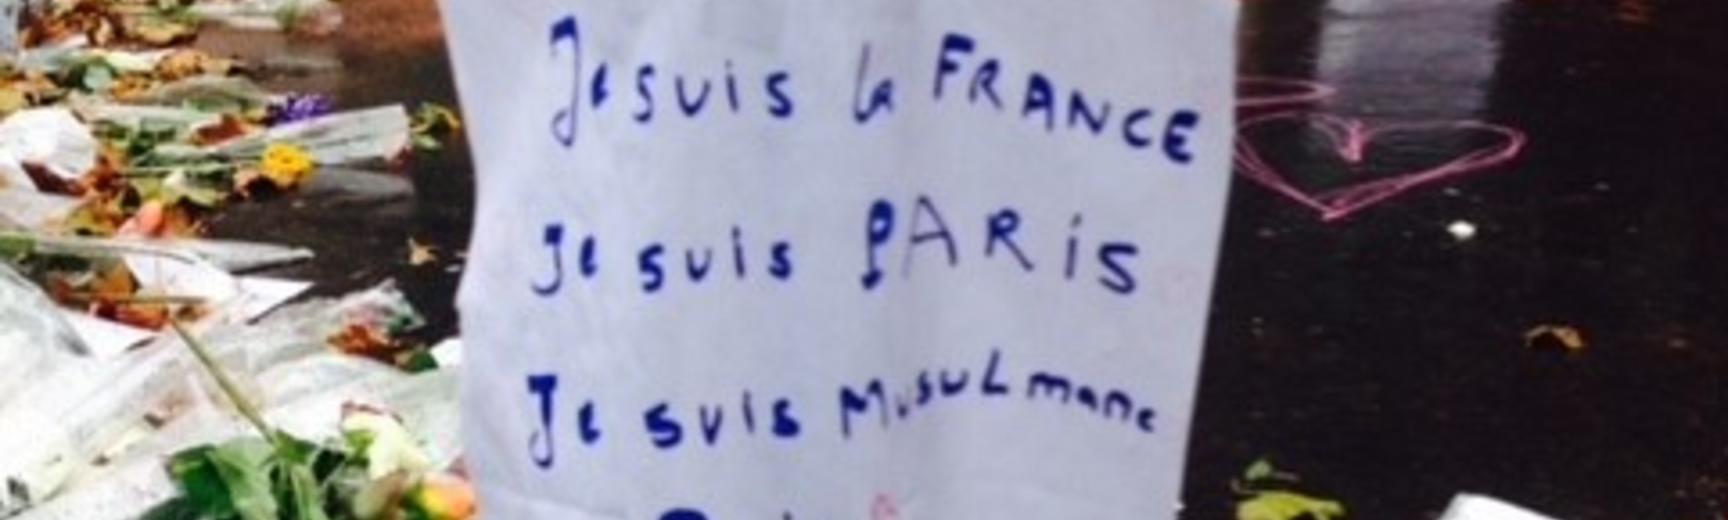 Je suis la FRANCE
Je suis PARiS
Je suis MusuLmane